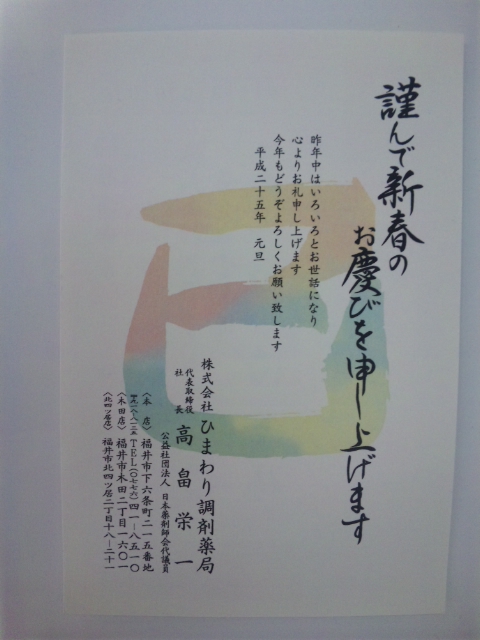 謹んで新春の
お慶びを申し上げます
昨年中はいろいろとお世話になり
心よりお礼申し上げます
今年もどうぞよろしくお願い致します
平成二十五年 元旦
巳
株式会社 ひまわり調剤薬局
代表取締役
社長 高畠栄一
公益社団法人 日本薬剤師会代議員
〈本店〉 福井市下六条町二一五番地
TEL(〇七七六)四一ー八五一〇
〈木田店〉 福井市木田二丁目一六〇一
〈北四ツ居店〉 福井市北四ツ居二丁目十八ー二十一